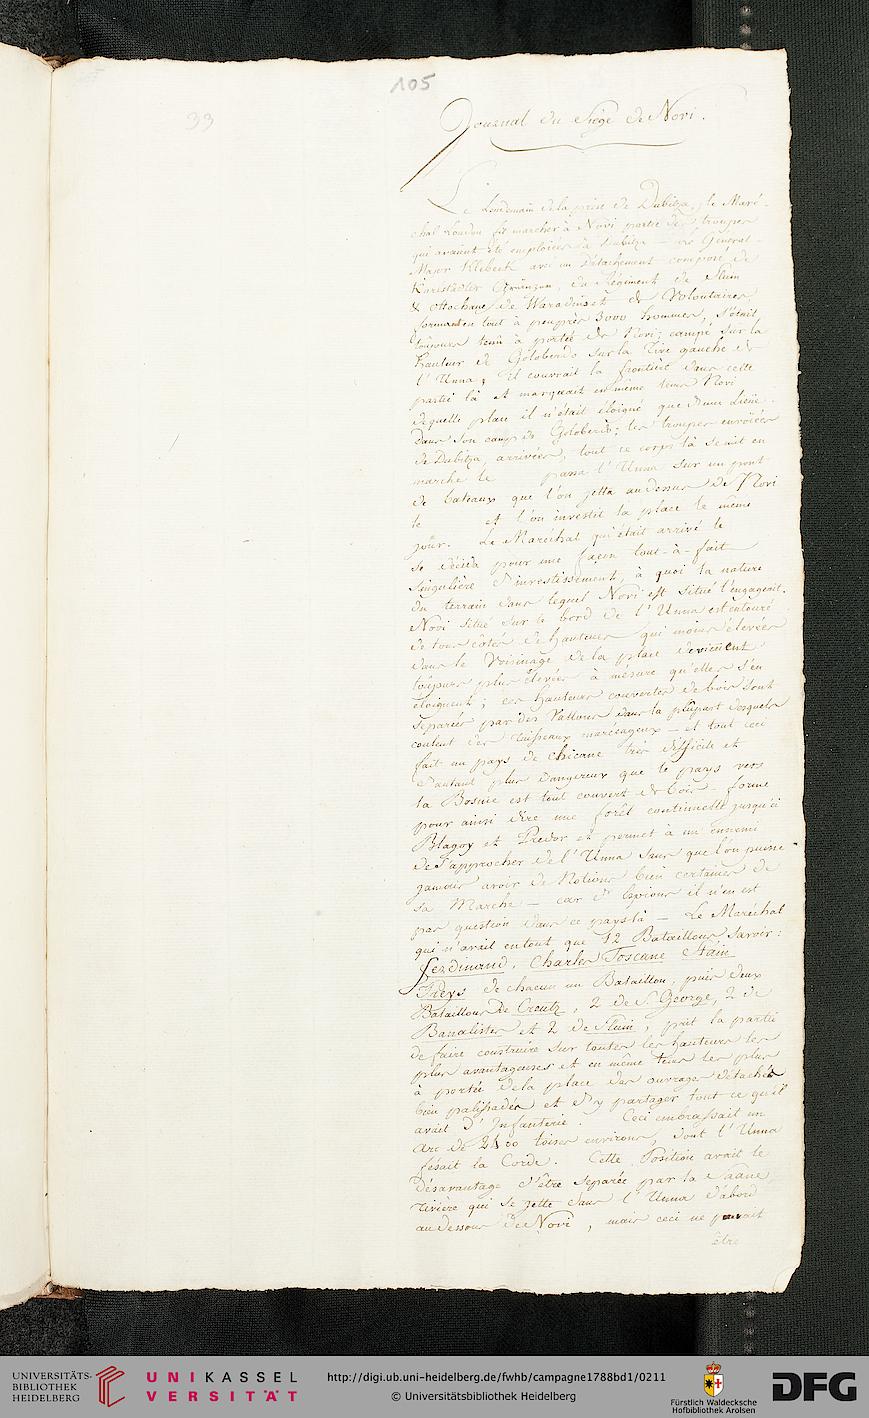 105
33
Journal du Siége de Novi.
Le Lendemain de la prise de Dubitza, le Maré-
chal Loudon fit marcher à Novi partie des trouppes
qui avaient été emploiées à Dubitza — Le General-
Major Klebeck avec un Détachement composé de
Karlstädter Gränzern, du Regiment de Sluin
& Ottochane, de Waradins et de Volontaires
formant en tout à peuprès 3000 hommes, s'était
toujours tenû à portée de Novi; campé sur la
hauteur de Goloberdo sur la rive gauche de
l'Unna; il couvrait la frontière dans cette
partie là et marquait en même tems Novi
de quelle place il n'était éloigné que d'une Lieüe.
Dans son camp de Goloberdo; les trouppes envoiées
de Dubitza arrivées, tout ce corps là se mit en
marche le passa l'Unna sur un pont
de bateaux que l'on jetta au dessus de Novi
le et l'on investit la place le même
jour. Le Maréchal qui était arrivé le
se décida pour une façon tout-à-fait
singulière d'investissement, à quoi la nature
du terrain dans lequel Novi est situé l'engageait.
Novi situé sur le bord de l'Unna est entouré
de tous côtés de hauteurs qui moins élevées
dans le Voisinage de la place deviennent
toujours plus élevées à mesure qu'elles s'en
éloignent; ces hauteurs couvertes de bois sont
separées par des Vallons dans la plûpart desquels
coulent des ruisseaux marecageux — et tout ceci
fait un pays de chicane très difficile et
d'autant plus dangereux que le pays vers
la Bosnie est tout couvert de bois — forme
pour ainsi dire une forêt continuelle jusqu'à
Blagay et Predor et permet à un ennemi
de s'approcher de l'Unna sans que l'on puisse
jamais avoir de Notions bien certaines de
sa Marche — car d'Espions il n'en est
pas question dans ce pays là — Le Maréchal
qui n'avait en tout que 12 Bataillons savoir:
Ferdinand, Charles Toscane Stain
Preys de chacun un Bataillon, puis deux
Bataillons de Creutz, 2 de St. George, 2 de
Banalistes et 2 de Sluin, prit la partie
de faire construire sur toutes les hauteurs les
plus avantageuses et en même tems les plus
à portée de la place des ouvrages détachés
bien palissadés et d'y partager tout ce qu'il
avait d'Infanterie. Ceci embrassait un
Arc de 2400 toises environs, dont l'Unna
fésait la Corde. Cette Position avait le
désavantage d'être separée par la Saane
rivière qui se jette dans l'Unna d'abord
au dessous de Novi, mais ceci ne pouvait
être
UNIVERSITÄTS-
BIBLIOTHEK
HEIDELBERG
UNIKASSEL
VERSITÄT
http://digi.ub.uni-heidelberg.de/fwhb/campagne1788bd1/0211
© Universitätsbibliothek Heidelberg
Fürstlich Waldecksche
Hofbibliothek Arolsen
DFG